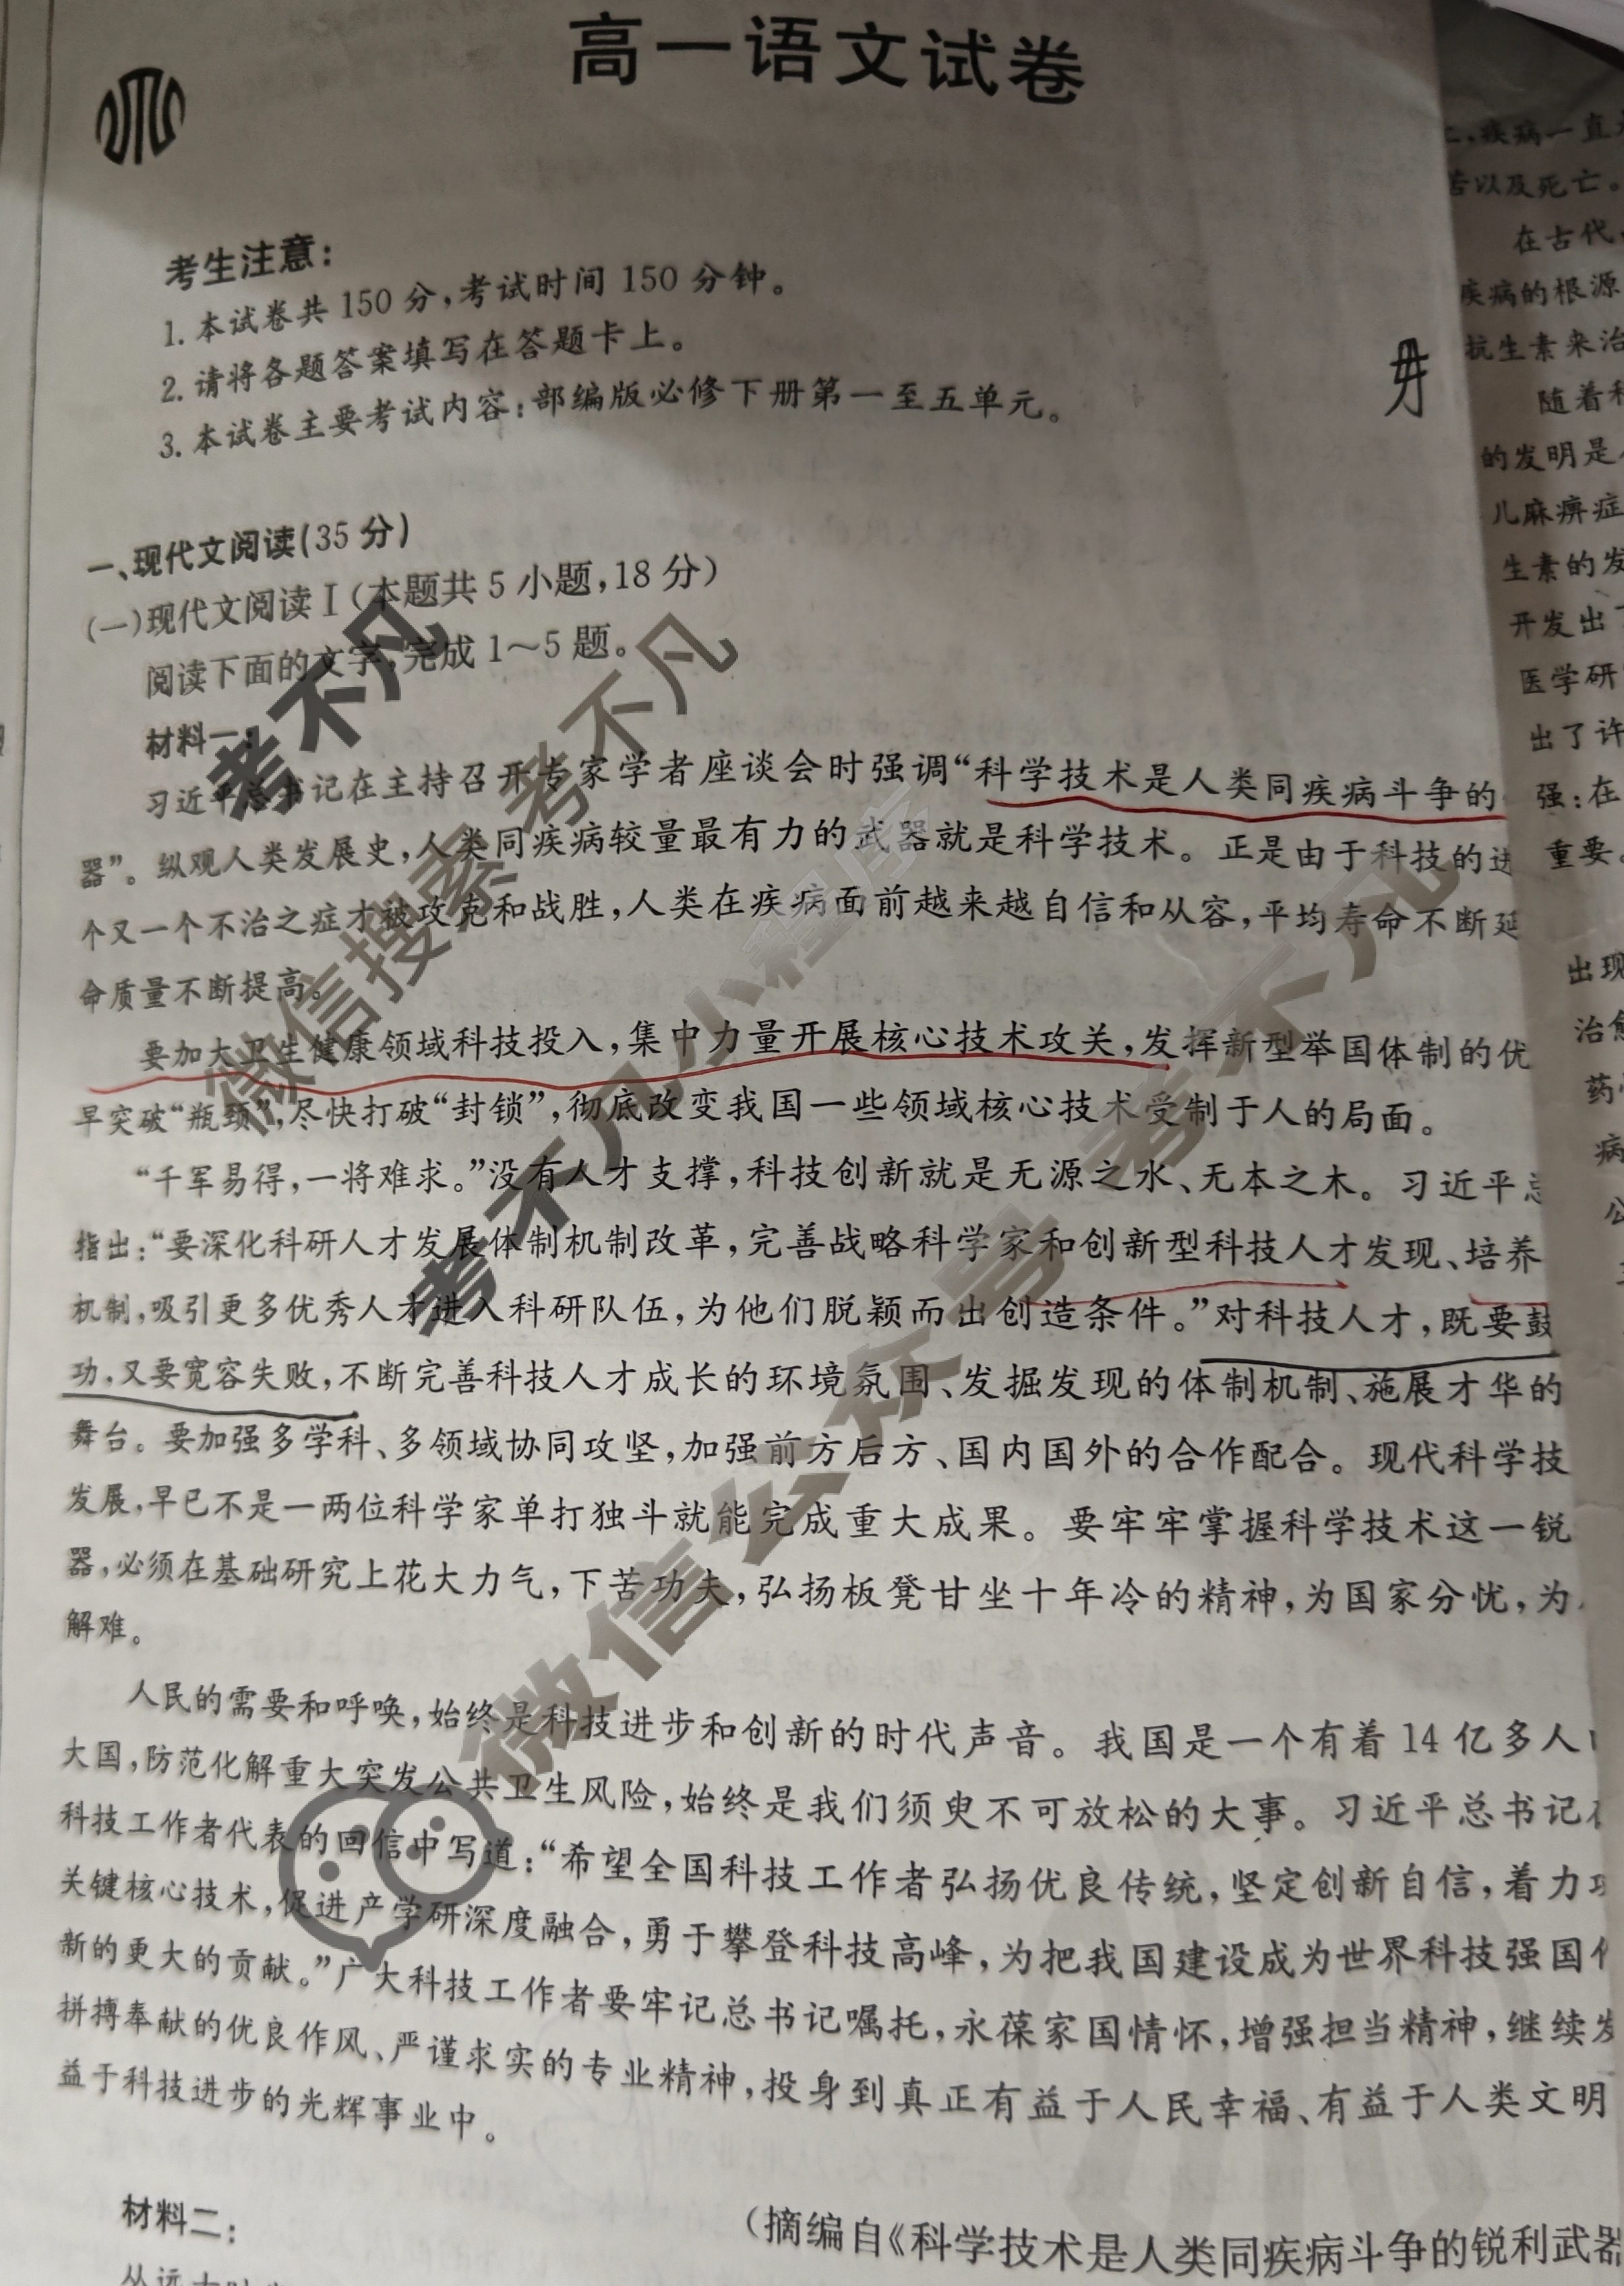 高一语文试卷
考生注意：
1. 本试卷共 150 分，考试时间 150 分钟。
2. 请将各题答案填写在答题卡上。
3. 本试卷主要考试内容：部编版必修下册第一至五单元。
一、现代文阅读(35 分)
(一)现代文阅读Ⅰ(本题共 5 小题，18 分)
阅读下面的文字，完成 1～5 题。
材料一：
习近平总书记在主持召开专家学者座谈会时强调“科学技术是人类同疾病斗争的
器”。纵观人类发展史，人类同疾病较量最有力的武器就是科学技术。正是由于科技的进
个又一个不治之症才被攻克和战胜，人类在疾病面前越来越自信和从容，平均寿命不断延
命质量不断提高。
要加大卫生健康领域科技投入，集中力量开展核心技术攻关，发挥新型举国体制的优
早突破“瓶颈”，尽快打破“封锁”，彻底改变我国一些领域核心技术受制于人的局面。
“千军易得，一将难求。”没有人才支撑，科技创新就是无源之水、无本之木。习近平总
指出：“要深化科研人才发展体制机制改革，完善战略科学家和创新型科技人才发现、培养
机制，吸引更多优秀人才进入科研队伍，为他们脱颖而出创造条件。”对科技人才，既要鼓
功，又要宽容失败，不断完善科技人才成长的环境氛围、发掘发现的体制机制、施展才华的
舞台。要加强多学科、多领域协同攻坚，加强前方后方、国内国外的合作配合。现代科学技
发展，早已不是一两位科学家单打独斗就能完成重大成果。要牢牢掌握科学技术这一锐
器，必须在基础研究上花大力气，下苦功夫，弘扬板凳甘坐十年冷的精神，为国家分忧，为
解难。
人民的需要和呼唤，始终是科技进步和创新的时代声音。我国是一个有着 14 亿多人
大国，防范化解重大突发公共卫生风险，始终是我们须臾不可放松的大事。习近平总书记在
科技工作者代表的回信中写道：“希望全国科技工作者弘扬优良传统，坚定创新自信，着力
关键核心技术，促进产学研深度融合，勇于攀登科技高峰，为把我国建设成为世界科技强国
新的更大的贡献。”广大科技工作者要牢记总书记嘱托，永葆家国情怀，增强担当精神，继续发
拼搏奉献的优良作风、严谨求实的专业精神，投身到真正有益于人民幸福、有益于人类文明
益于科技进步的光辉事业中。
(摘编自《科学技术是人类同疾病斗争的锐利武器
材料二：
疾病一直
苦以及死亡。
在古代，
疾病的根源
抗生素来治
随着科
的发明是
儿麻痹症
生素的发
开发出
医学研
出了许
强：在
重要。
出现
治愈
药
病
考不凡
微信搜索 考不凡
考不凡小程序
微信公众号 考不凡